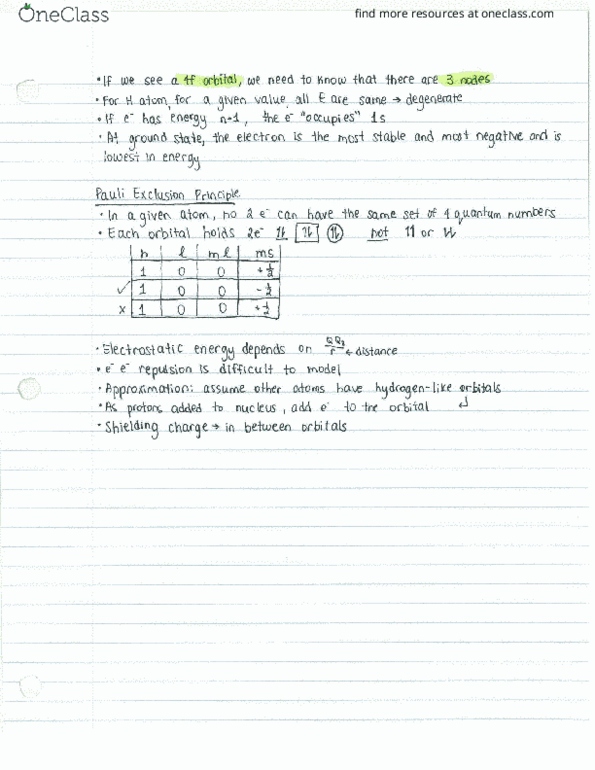 OneClass
find more resources at oneclass.com
• If we see a 4f orbital, we need to know that there are 3 nodes
• For H atom, for a given value, all E are same → degenerate
• If e⁻ has energy n=1, the e⁻ "occupies" 1s
• At ground state, the electron is the most stable and most negative and is
lowest in energy
Pauli Exclusion Principle
• In a given atom, no 2 e⁻ can have the same set of 4 quantum numbers
• Each orbital holds 2e⁻ ↿⇂ ↿⇂ ↿⇂ not ↿↿ or ⇂⇂
n l ml ms
1 0 0 +½
✓ 1 0 0 -½
x 1 0 0 +½
• Electrostatic energy depends on Q₁Q₂/r ← distance
• e⁻ e⁻ repulsion is difficult to model
• Approximation: assume other atoms have hydrogen-like orbitals
• As protons added to nucleus, add e⁻ to the orbital ↵
• Shielding charge → in between orbitals